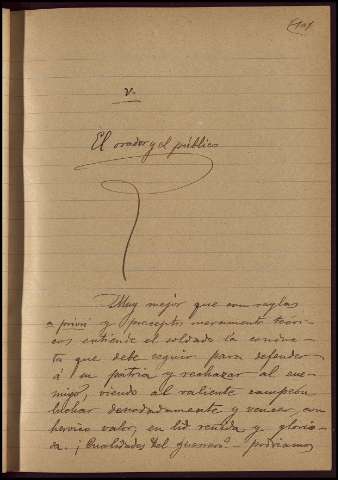 101
V.
El orador y el público
Muy mejor que con reglas
a priori y preceptos meramente teóri-
cos entiende el soldado la conduc-
ta que debe seguir para defender
á su patria y rechazar al ene-
migo, viendo al valiente campeón
luchar denodadamente y vencer, con
heroico valor, en lid reñida y glorio-
sa. ¡Cualidades del guerrero! — podríamos